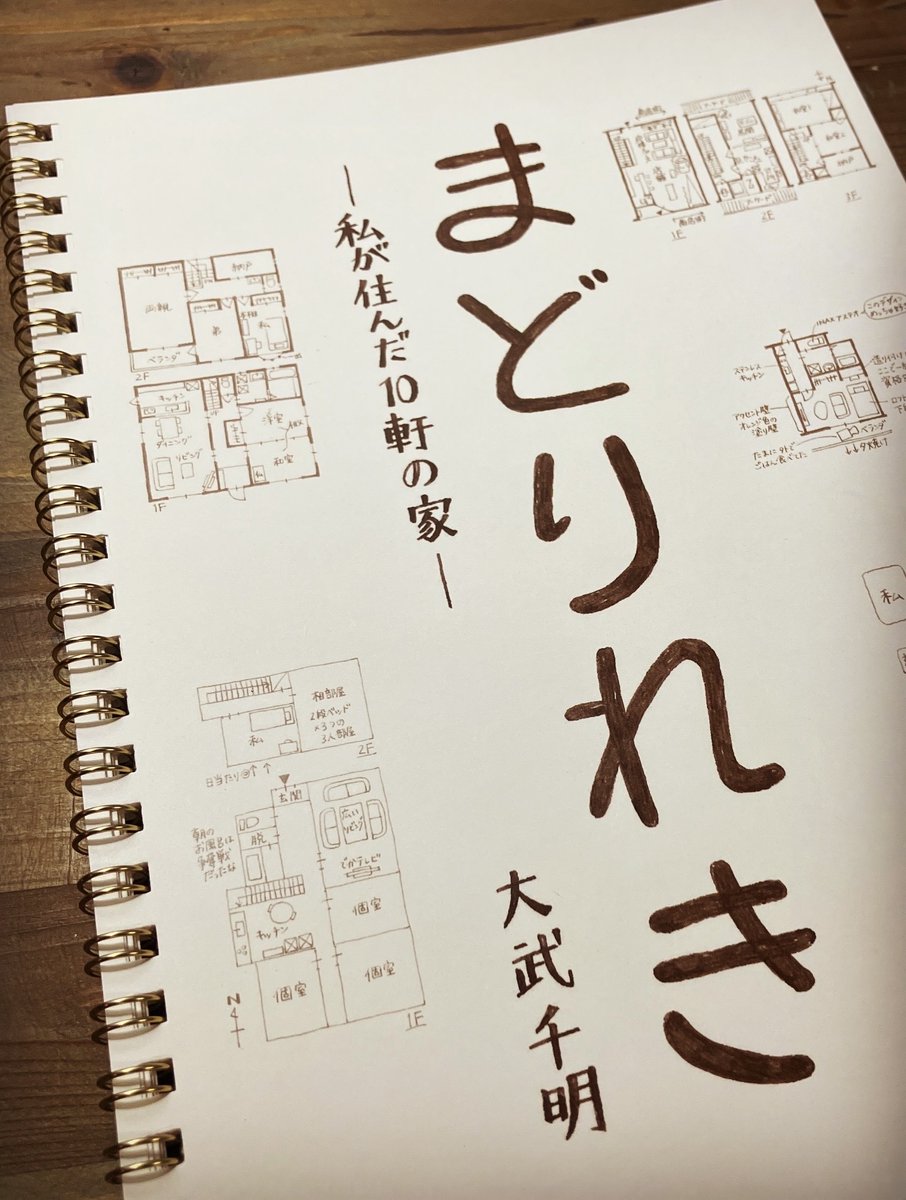 まどりれき
―私が住んだ10軒の家―
大武千明
1F
2F
3F
和室2
納戸
INAXタイル
このデザイン
ステンレス
キッチン
アクセント壁
オレンジ色の
塗り壁
ベランダ
たまに外で
ごはん食べした
↓↓夕焼け
私
納戸
両親
弟
私
ベランダ
2F
キッチン
ダイニング
リビング
洋室
和室
1F
相部屋
2段ベッド
×3つの
3人部屋
私
2F
日当たり◎↑↑
玄関
広い
リビング
でかテレビ
脱
朝の
お風呂は
争奪戦
だったな
キッチン
個室
個室
個室
N
1F